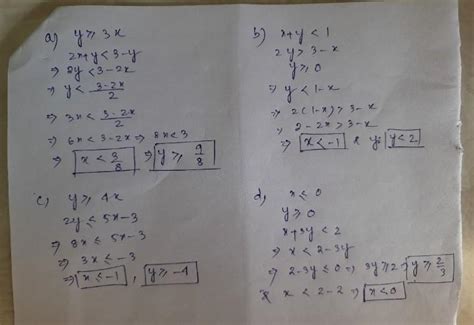 a) y ≥ 3x
2x+y < 3-y
⇒ 2y < 3-2x
⇒ y < (3-2x)/2
⇒ 3x < (3-2x)/2
⇒ 6x < 3-2x ⇒ 8x < 3
⇒ x < 3/8 ⇒ y ≥ 9/8
b) x+y < 1
2y > 3-x
y ≥ 0
⇒ y < 1-x
⇒ 2(1-x) > 3-x
⇒ 2-2x > 3-x
⇒ x < -1 & y < 2
c) y ≥ 4x
2y ≤ 5x-3
⇒ 8x ≤ 5x-3
⇒ 3x ≤ -3
⇒ x ≤ -1 , y ≥ -4
d) x ≤ 0
y ≥ 0
x+3y < 2
⇒ x < 2-3y
⇒ 2-3y ≤ 0 ⇒ 3y ≥ 2 ⇒ y ≥ 2/3
& x < 2-2 ⇒ x < 0